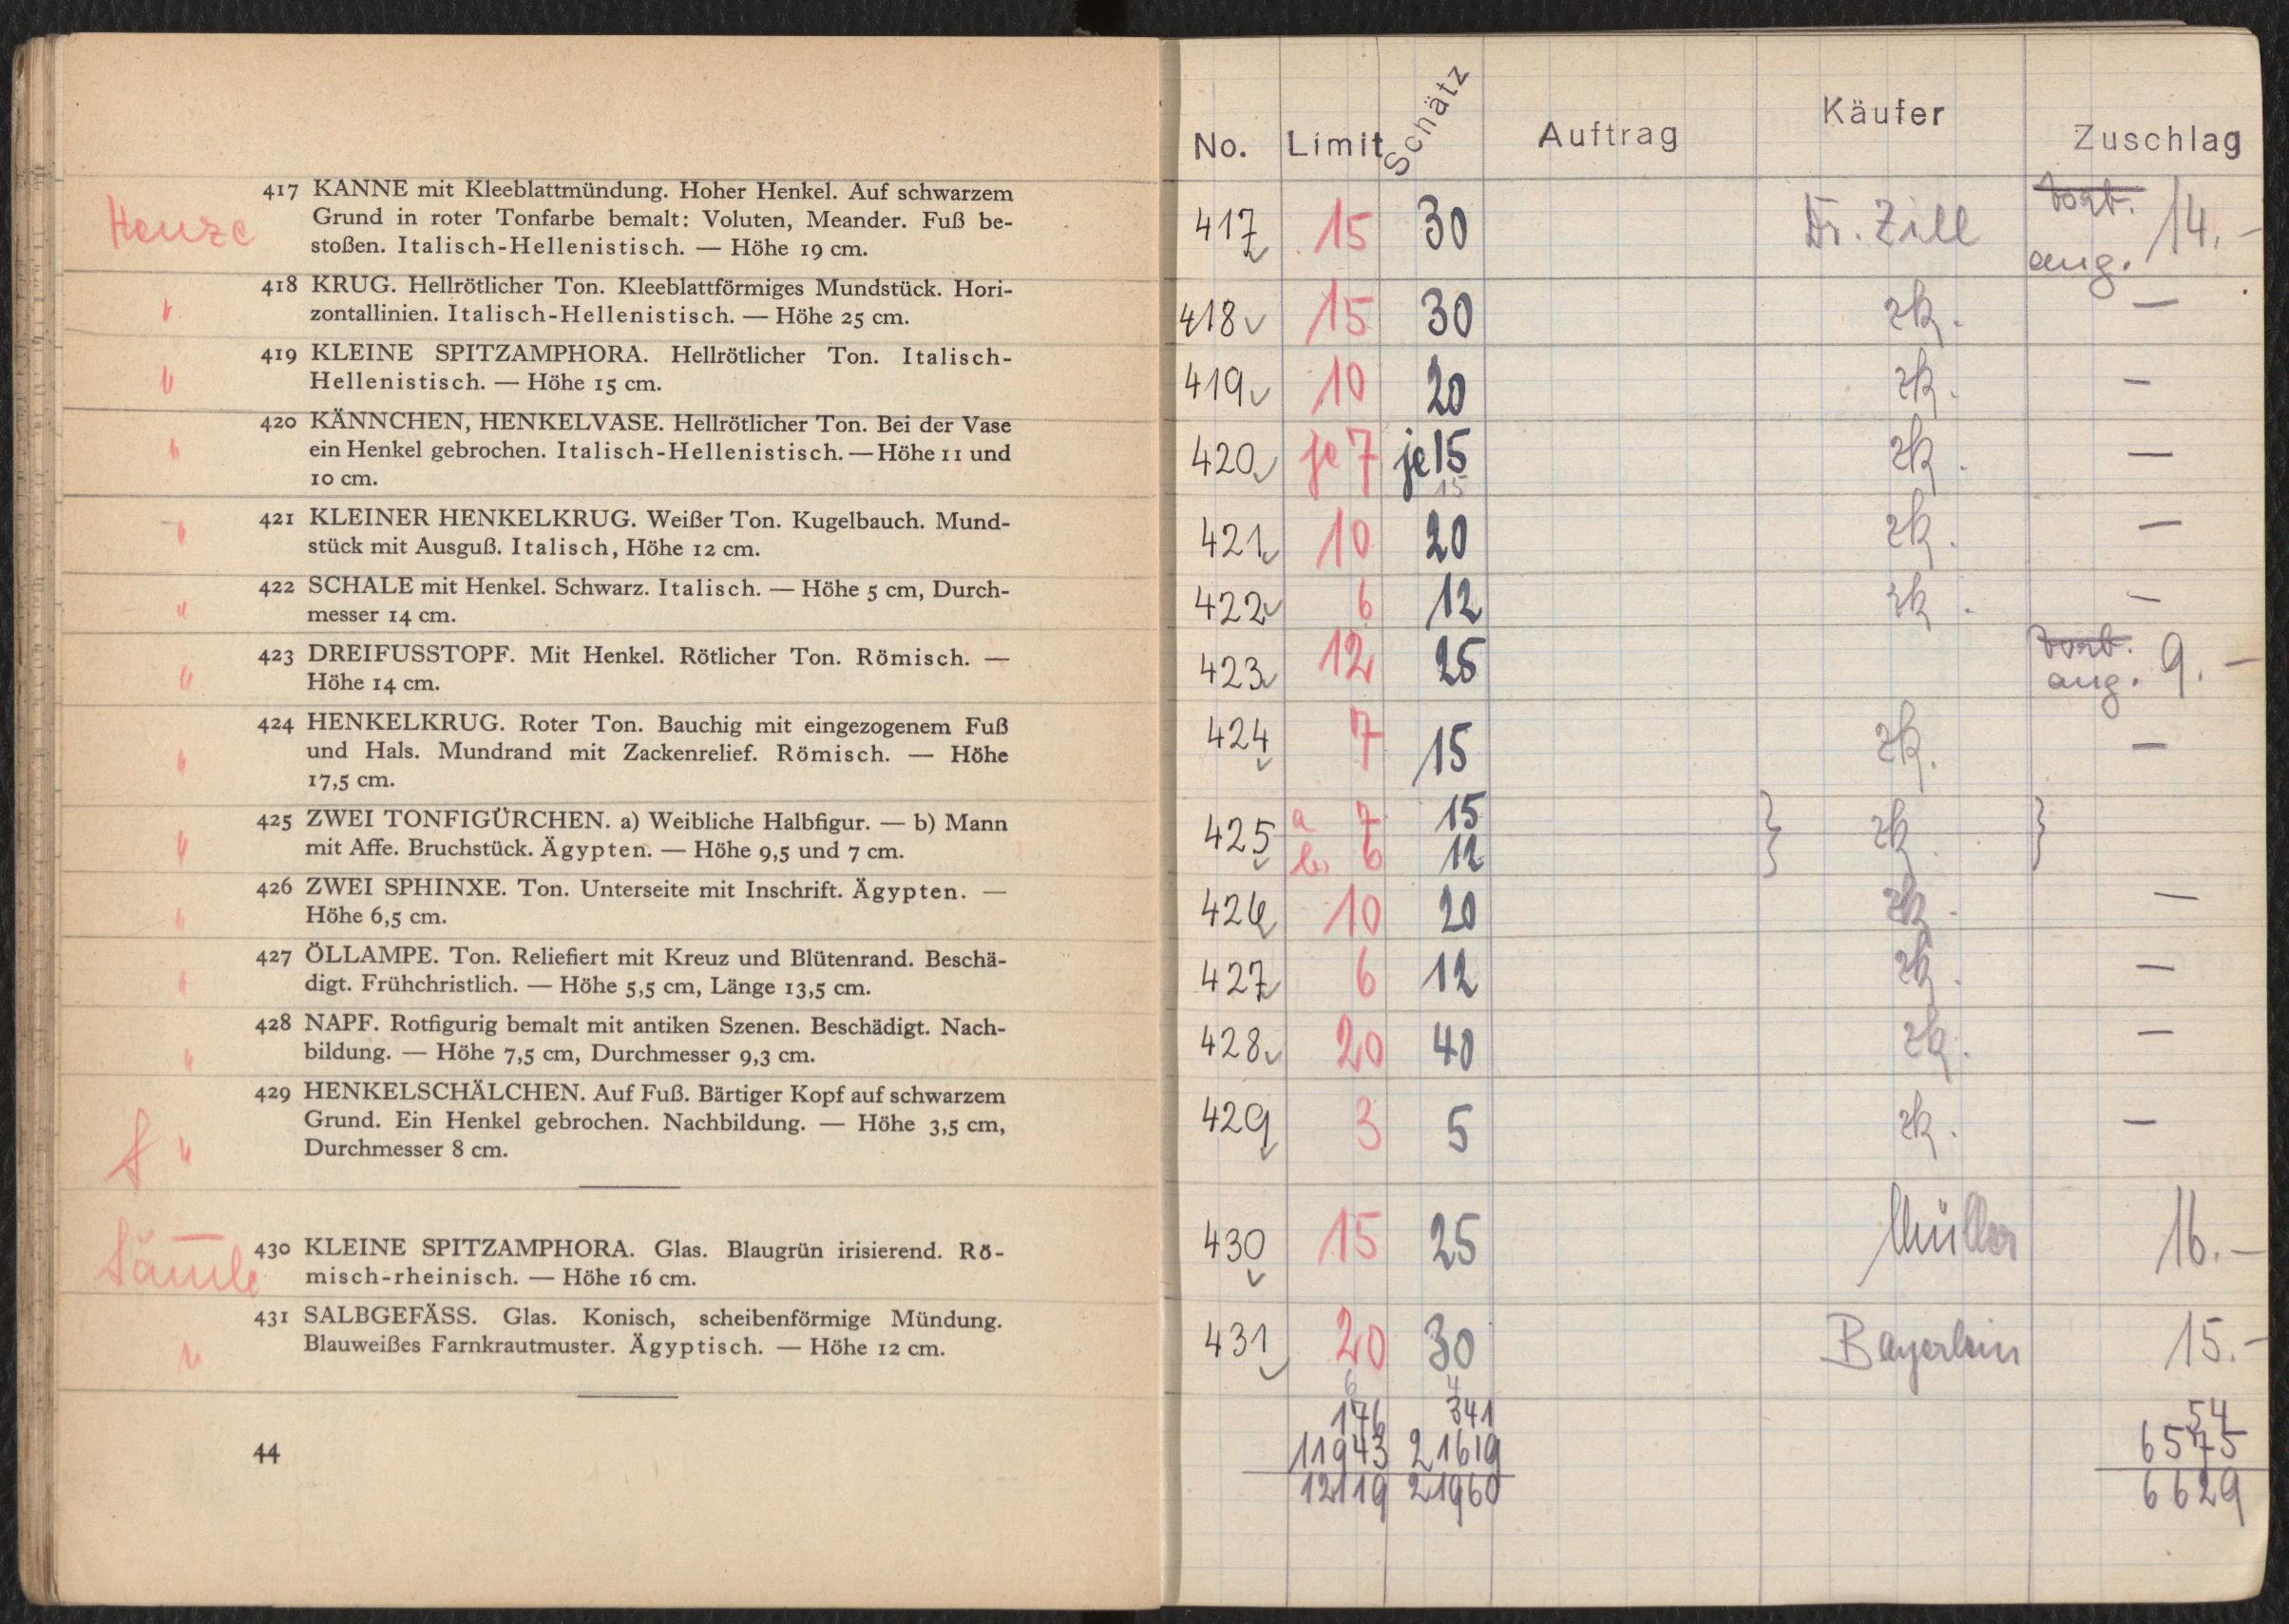 417 KANNE mit Kleeblattmündung. Hoher Henkel. Auf schwarzem
Grund in roter Tonfarbe bemalt: Voluten, Meander. Fuß be-
stoßen. Italisch-Hellenistisch. — Höhe 19 cm.
Henze
418 KRUG. Hellrötlicher Ton. Kleeblattförmiges Mundstück. Hori-
zontallinien. Italisch-Hellenistisch. — Höhe 25 cm.
"
419 KLEINE SPITZAMPHORA. Hellrötlicher Ton. Italisch-
Hellenistisch. — Höhe 15 cm.
"
420 KÄNNCHEN, HENKELVASE. Hellrötlicher Ton. Bei der Vase
ein Henkel gebrochen. Italisch-Hellenistisch. — Höhe 11 und
10 cm.
"
421 KLEINER HENKELKRUG. Weißer Ton. Kugelbauch. Mund-
stück mit Ausguß. Italisch, Höhe 12 cm.
"
422 SCHALE mit Henkel. Schwarz. Italisch. — Höhe 5 cm, Durch-
messer 14 cm.
"
423 DREIFUSSTOPF. Mit Henkel. Rötlicher Ton. Römisch. —
Höhe 14 cm.
"
424 HENKELKRUG. Roter Ton. Bauchig mit eingezogenem Fuß
und Hals. Mundrand mit Zackenrelief. Römisch. — Höhe
17,5 cm.
"
425 ZWEI TONFIGÜRCHEN. a) Weibliche Halbfigur. — b) Mann
mit Affe. Bruchstück. Ägypten. — Höhe 9,5 und 7 cm.
"
426 ZWEI SPHINXE. Ton. Unterseite mit Inschrift. Ägypten. —
Höhe 6,5 cm.
"
427 ÖLLAMPE. Ton. Reliefiert mit Kreuz und Blütenrand. Beschä-
digt. Frühchristlich. — Höhe 5,5 cm, Länge 13,5 cm.
"
428 NAPF. Rotfigurig bemalt mit antiken Szenen. Beschädigt. Nach-
bildung. — Höhe 7,5 cm, Durchmesser 9,3 cm.
"
429 HENKELSCHÄLCHEN. Auf Fuß. Bärtiger Kopf auf schwarzem
Grund. Ein Henkel gebrochen. Nachbildung. — Höhe 3,5 cm,
Durchmesser 8 cm.
"
430 KLEINE SPITZAMPHORA. Glas. Blaugrün irisierend. Rö-
misch-rheinisch. — Höhe 16 cm.
431 SALBGEFÄSS. Glas. Konisch, scheibenförmige Mündung.
Blauweißes Farnkrautmuster. Ägyptisch. — Höhe 12 cm.
"
44
No. Limit Schätz Auftrag Käufer Zuschlag
417 15 30 Dr. Zill 14.-
418 15 30 zk. —
419 10 20 zk. —
420 je 7 je 15 zk. —
15
421 10 20 zk. —
422 6 12 zk. —
423 12 25 9.-
424 7 15 zk. —
425 a 7 15 zk.
b 6 12
426 10 20 zk. —
427 6 12 zk. —
428 20 40 zk. —
429 3 5 zk. —
430 15 25 Müller 16.-
431 20 30 Bayerlein 15.-
176 341 54
11943 21619 6575
12119 21960 6629